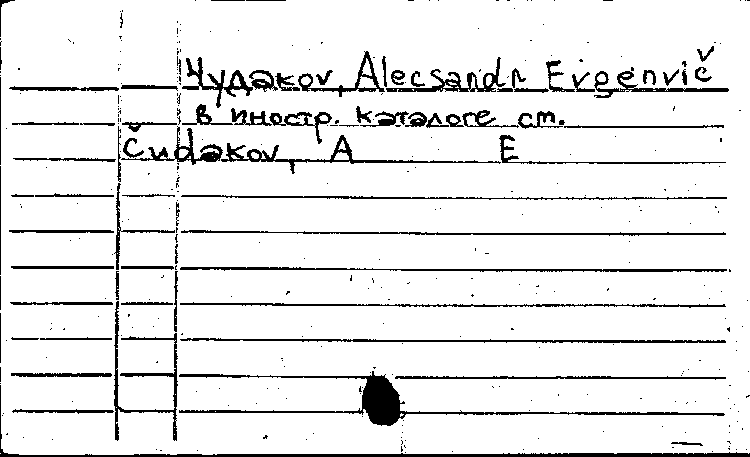 Чудакov, Alecsandr Evgenvič
в иностр. каталоге см.
Čudakov, A E